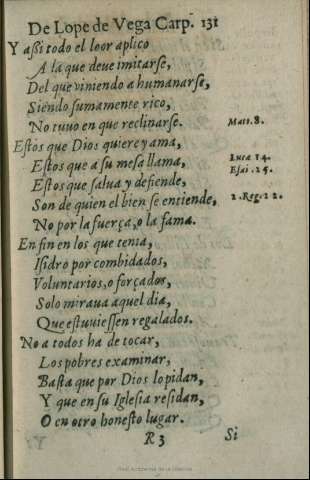 De Lope de Vega Carp. 131
Y aſsi todo el loor aplico
A la que deve imitarſe,
Del que viniendo a humanarſe,
Siendo ſumamente rico,
No tuvo en que reclinarſe. Matt. 8.
Eſtos que Dios quiere y ama,
Eſtos que a ſu meſa llama, Luca 14.
Eſtos que ſalva y defiende, Eſai. 25.
Son de quien el bien ſe entiende, 2. Reg. 22.
No por la fuerça, o la fama.
En fin en los que tenia,
Iſidro por combidados,
Voluntarios, o forçados,
Solo mirava aquel dia,
Que eſtuvieſſen regalados.
No a todos ha de tocar,
Los pobres examinar,
Baſta que por Dios lo pidan,
Y que en ſu Igleſia reſidan,
O en otro honeſto lugar.
R 3 Si